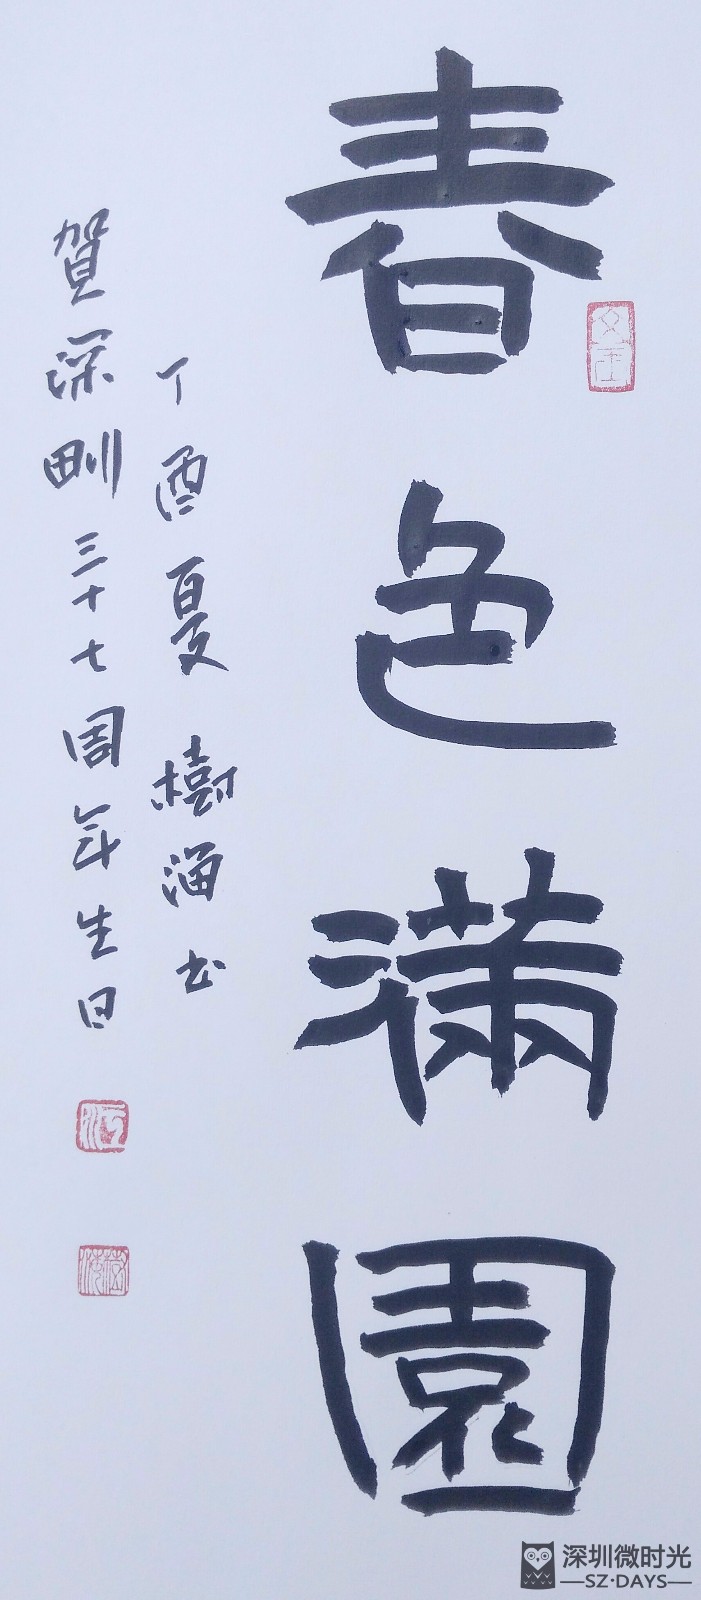 春色滿園
丁酉夏樹海书
賀深甽三十七周年生日
深圳微时光
—SZ·DAYS—